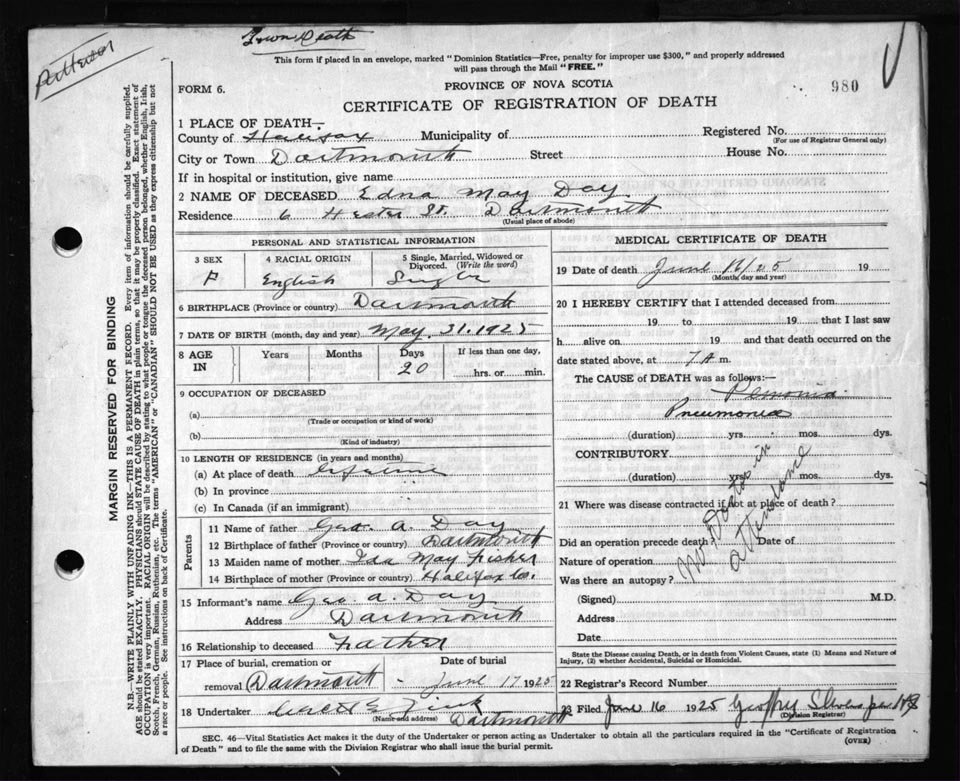 Town Death
Patterson
This form if placed in an envelope, marked "Dominion Statistics—Free, penalty for improper use $300," and properly addressed
will pass through the Mail "FREE."
FORM 6.
PROVINCE OF NOVA SCOTIA
980
CERTIFICATE OF REGISTRATION OF DEATH
1 PLACE OF DEATH—
County of Halifax Municipality of Registered No.
(For use of Registrar General only)
City or Town Dartmouth Street House No.
If in hospital or institution, give name
2 NAME OF DECEASED Edna May Day
Residence 6 Hester St. Dartmouth
(Usual place of abode)
PERSONAL AND STATISTICAL INFORMATION
3 SEX 4 RACIAL ORIGIN 5 Single, Married, Widowed or
Divorced. (Write the word)
F English Single
6 BIRTHPLACE (Province or country) Dartmouth
7 DATE OF BIRTH (month, day and year) May 31. 1925
8 AGE IN Years Months Days If less than one day,
20 hrs. or min.
9 OCCUPATION OF DECEASED
(a)
(Trade or occupation or kind of work)
(b)
(Kind of industry)
10 LENGTH OF RESIDENCE (in years and months)
(a) At place of death Lifetime
(b) In province
(c) In Canada (if an immigrant)
Parents
11 Name of father Geo. A. Day
12 Birthplace of father (Province or country) Dartmouth
13 Maiden name of mother Ida May Fisher
14 Birthplace of mother (Province or country) Halifax Co.
15 Informant's name Geo. A. Day
Address Dartmouth
16 Relationship to deceased Father
17 Place of burial, cremation or Date of burial
removal Dartmouth - June 17 1925
18 Undertaker Zink
(Name and address) Dartmouth
MEDICAL CERTIFICATE OF DEATH
19 Date of death June 16/25 19
(Month, day and year)
20 I HEREBY CERTIFY that I attended deceased from
19 to 19 that I last saw
h alive on 19 and that death occurred on the
date stated above, at 7 A m.
The CAUSE OF DEATH was as follows:—
Pneumonia
(duration) yrs. mos. dys.
CONTRIBUTORY
(duration) yrs. mos. dys.
21 Where was disease contracted if not at place of death?
Did an operation precede death? Date of
Nature of operation
Was there an autopsy?
No Doctor in
attendance
(Signed) M.D.
Address
Date
State the Disease causing Death, or in death from Violent Causes, state (1) Means and Nature of
Injury, (2) whether Accidental, Suicidal or Homicidal.
22 Registrar's Record Number
23 Filed June 16 1925
(Division Registrar)
SEC. 46—Vital Statistics Act makes it the duty of the Undertaker or person acting as Undertaker to obtain all the particulars required in the "Certificate of Registration
of Death" and to file the same with the Division Registrar who shall issue the burial permit.
(OVER)
MARGIN RESERVED FOR BINDING
N.B.—WRITE PLAINLY WITH UNFADING INK—THIS IS A PERMANENT RECORD. Every item of information should be carefully supplied.
AGE should be stated EXACTLY. PHYSICIANS should STATE CAUSE OF DEATH in plain terms, so that it may be properly classified. Exact statement of
OCCUPATION is very important. RACIAL ORIGIN will be described by stating to what people or tongue the deceased person belonged, whether English, Irish,
Scotch, French, German, Russian, Ruthenian, etc. The terms "AMERICAN" or "CANADIAN" SHOULD NOT BE USED as they express citizenship but not
a race or people. See instructions on back of Certificate.